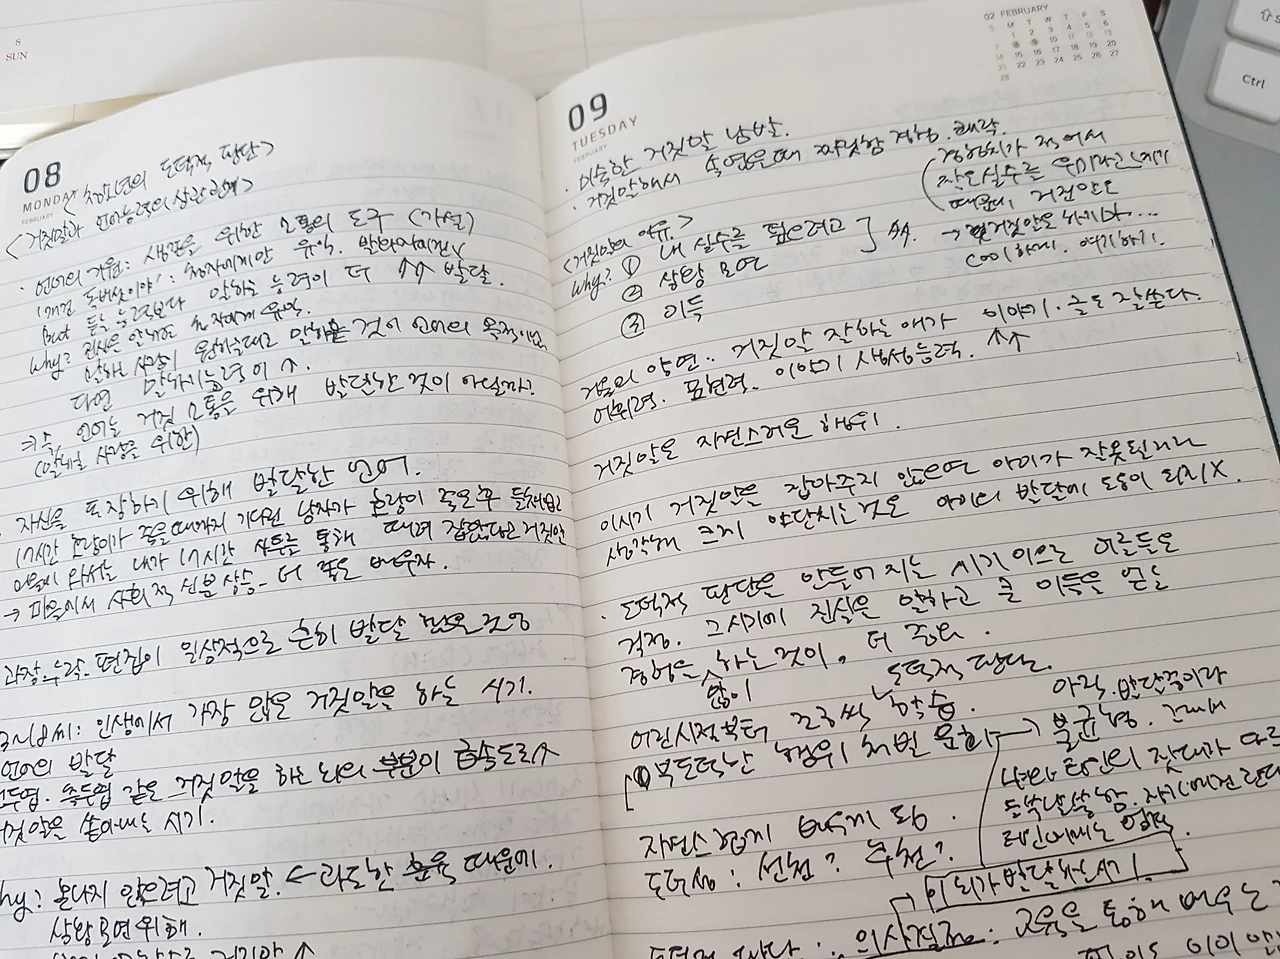 8
SUN
08
MONDAY
FEBRUARY
<청소년의 도덕적 판단>
<거짓말과 언어능력의 상관관계>
· 언어의 기원: 생존을 위한 소통의 도구 (가설)
: 청자에게만 유익. 발화자에겐
But 듣는 능력보다 말하는 능력이 더 ↑↑ 발달.
Why? 청자에게 유익.
말하는 사람이 원하는대로 말하는 것이 언어의 목적이면
다면 말하기능력이 ↑.
⇒ 즉, 언어는 거짓 소통을 위해 발달한 것이 아닐까?
위한)
자신을 포장하기 위해 발달한 언어.
17시간 호랑이가 죽을때까지 기다린 남자가 호랑이 죽은후 들쳐업고
마을에 와서는 내가 17시간 사투를 통해 때려 잡았다고 거짓말
→ 마을에서 사회적 신분상승 - 더 좋은 배우자.
과장. 누락. 편집이 일상적으로 흔히 발달
인생에서 가장 많은 거짓말을 하는 시기.
언어의 발달
전두엽. 측두엽 같은 거짓말을 하는 뇌의 부분이 급속도로↑
거짓말을 쏟아내는 시기.
why: 혼나지 않으려고 거짓말. ← 과도한 훈육 때문에.
상황모면 위해.
09
TUESDAY
FEBRUARY
02 FEBRUARY
S M T W T F S
1 2 3 4 5 6
7 8 9 10 11 12 13
14 15 16 17 18 19 20
21 22 23 24 25 26 27
28
· 미숙한 거짓말 남발.
· 거짓말해서 속였을때 짜릿함 경험. 쾌락.
(경험치가 적어서
작은실수를 위기라고 느끼기
때문에 거짓말은
→ 거짓말은 하지마...
COOl하게. 얘기하기.
<거짓말의 이유>
Why? ① 내 실수를 덮으려고
② 상황 모면
③ 이득
거울의 양면: 거짓말 잘하는 애가 이야기·글도 잘쓴다.
어휘력. 표현력. 이야기 생성능력. ↑↑
거짓말은 자연스러운 행위.
이시기 거짓말을 잡아주지 않으면 아이가 잘못된다라
생각해 크게 야단치는것은 아이의 발달에 도움이 되지X
· 도덕적 판단은 만들어 지는 시기 이므로 어른들은
걱정. 그시기에 진실을 말하고 큰 이득을 얻는
경험을 많이 하는 것이, 더 중요.
도덕적 판단.
어린시절부터 조금씩 학습.
① 부도덕한 행위 처벌 문화 → 불균형. 그래서
아직. 발달중이라
나와 타인의 잣대가 다르
들쑥날쑥함. 자기에겐 관대
타인에게는 엄격
자연스럽게 배우게 됨.
도덕성: 선천? 후천?
이 뇌가 발달하는 시기.
도덕적 판단: 의사결정: 교육을 통해 배우는